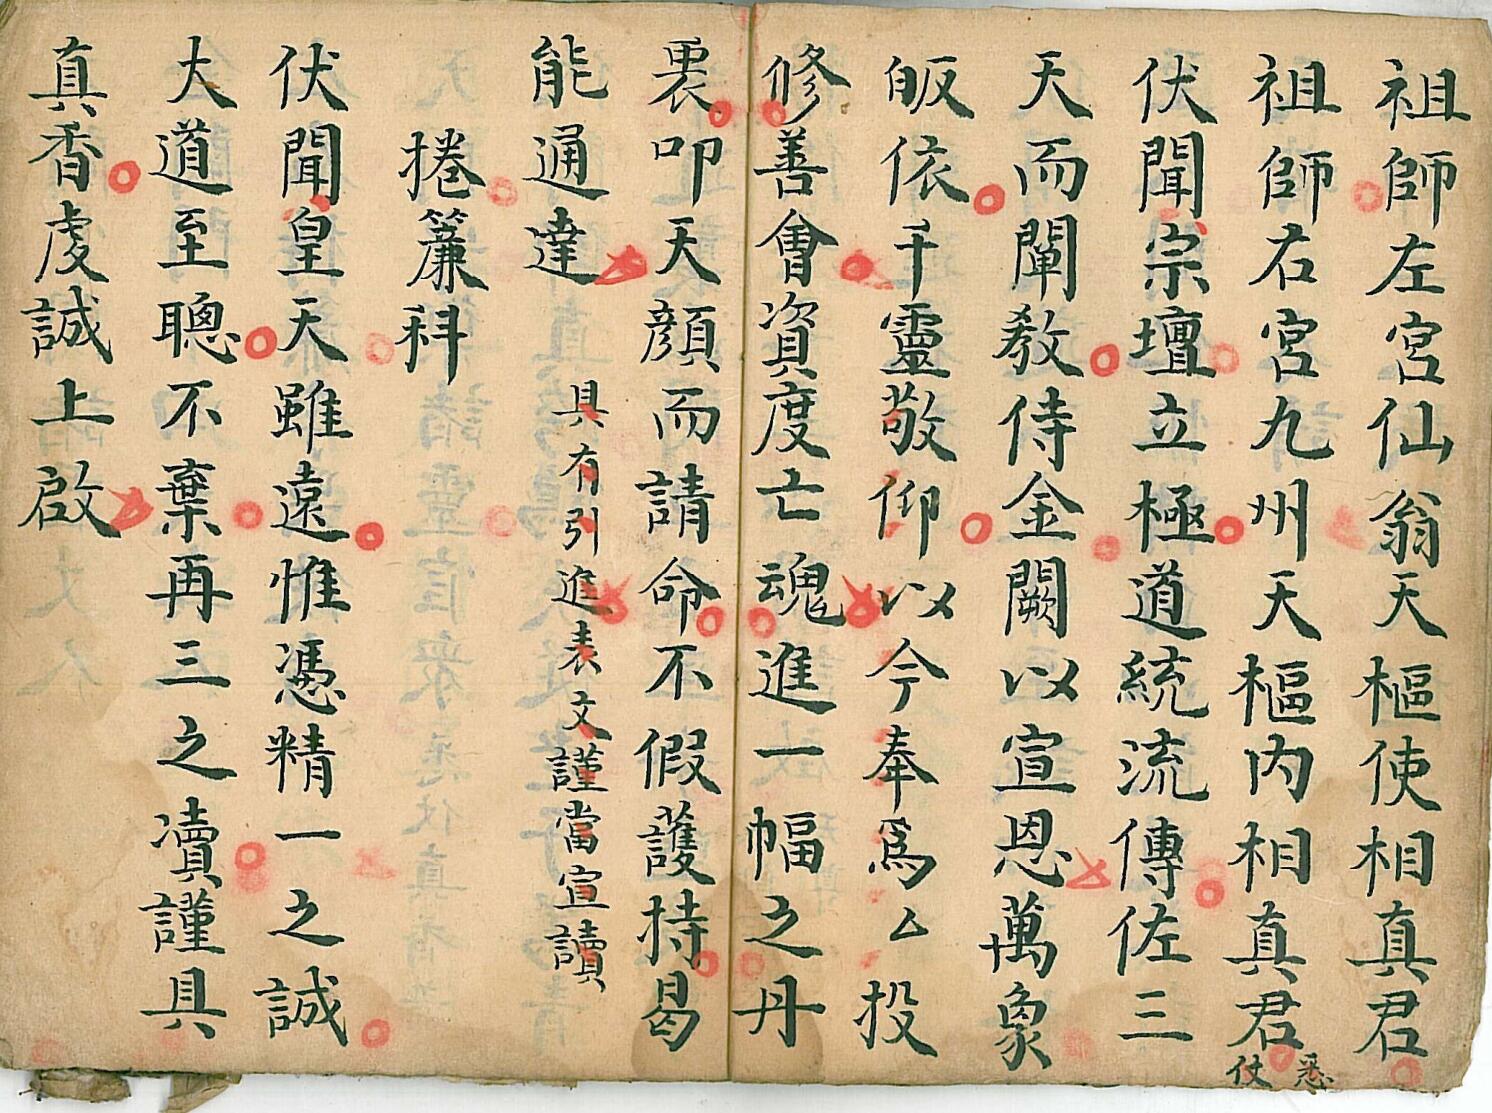 祖師左宮仙翁天樞使相真君
祖師右宮九州天樞內相真君
悉仗
伏聞宗壇立極道統流傳佐三
天而闡教侍金闕以宣恩萬象
皈依千靈敬仰以今奉為厶投
修善會資度亡魂進一幅之丹
裏叩天顏而請命不假護持曷
能通達
具有引進表文謹當宣讀
捲簾科
伏聞皇天雖遠惟憑精一之誠
大道至聰不棄再三之瀆謹具
真香虔誠上啟